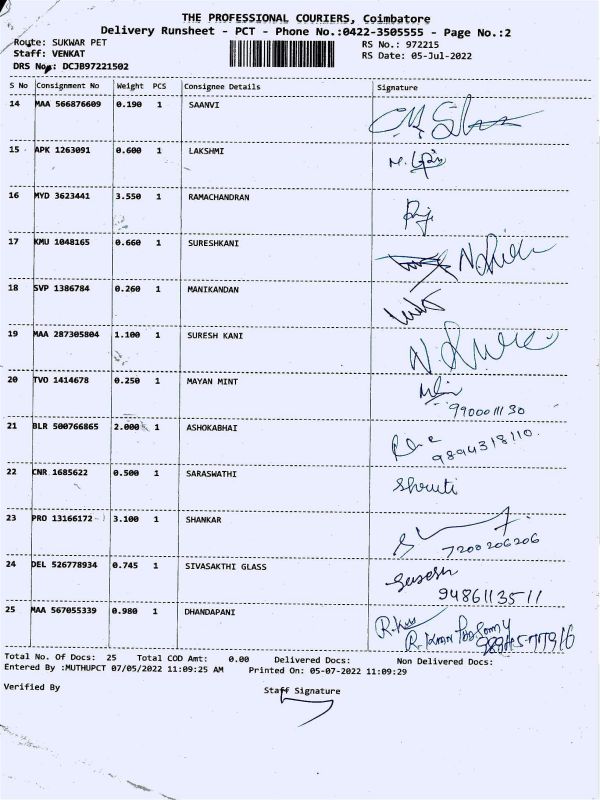 THE PROFESSIONAL COURIERS, Coimbatore
Delivery Runsheet - PCT - Phone No.:0422-3505555 - Page No.:2
Route: SUKWAR PET RS No.: 972215
Staff: VENKAT RS Date: 05-Jul-2022
DRS No.: DCJB97221502
S No Consignment No Weight PCS Consignee Details Signature
14 MAA 566876609 0.190 1 SAANVI
15 APK 1263091 0.600 1 LAKSHMI
16 MYD 3623441 3.550 1 RAMACHANDRAN
17 KMU 1048165 0.660 1 SURESHKANI
18 SVP 1386784 0.260 1 MANIKANDAN
19 MAA 287305804 1.100 1 SURESH KANI
20 TVO 1414678 0.250 1 MAYAN MINT
9900011130
21 BLR 500766865 2.000 1 ASHOKABHAI
9894318110.
22 CNR 1685622 0.500 1 SARASWATHI Shruti
23 PRO 13166172 3.100 1 SHANKAR
7200206206
24 DEL 526778934 0.745 1 SIVASAKTHI GLASS Suresh
9486113511
25 MAA 567055339 0.980 1 DHANDAPANI
Total No. Of Docs: 25 Total COD Amt: 0.00 Delivered Docs: Non Delivered Docs:
Entered By :MUTHUPCT 07/05/2022 11:09:25 AM Printed On: 05-07-2022 11:09:29
Verified By Staff Signature